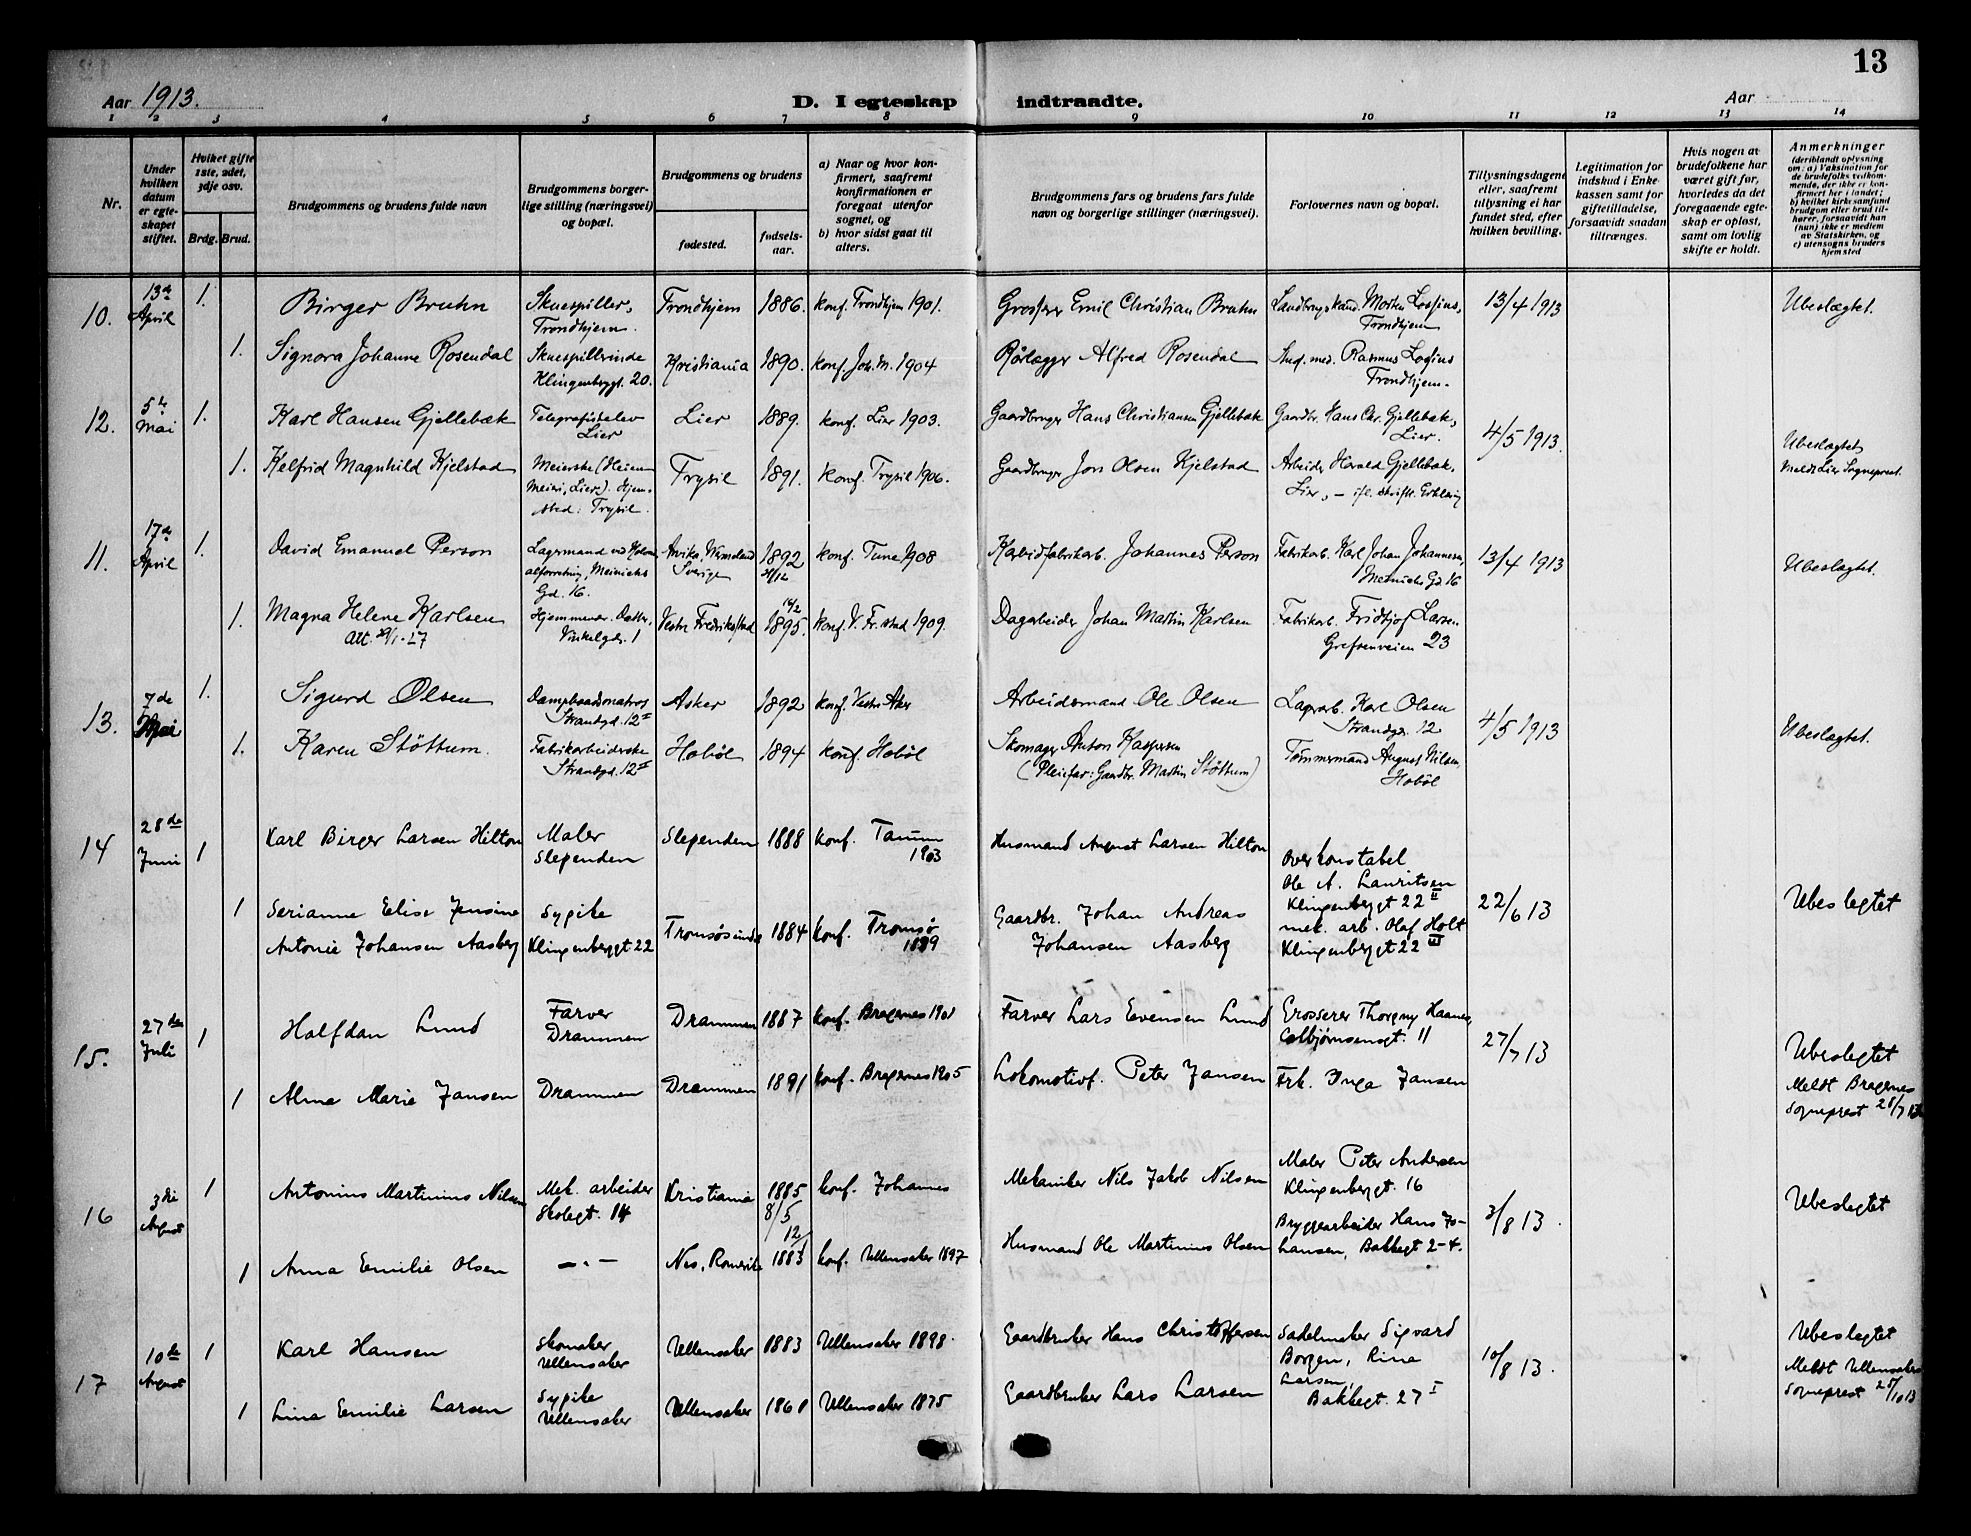 13
Aar 1913.
D. I egteskap indtraadte.
Aar
1 2 3 4 5 6 7 8 9 10 11 12 13 14
Nr.
Under hvilken datum er egteskapet stiftet.
Hvilket gifte 1ste, 2det, 3dje osv.
Brdg. Brud.
Brudgommens og brudens fulde navn
Brudgommens borgerlige stilling (næringsvei) og bopæl.
Brudgommens og brudens
fødested.
fødselsaar.
a) Naar og hvor konfirmert, saafremt konfirmationen er foregaat utenfor sognet, og
b) hvor sidst gaat til alters.
Brudgommens fars og brudens fars fulde navn og borgerlige stillinger (næringsvei).
Forlovernes navn og bopæl.
Tillysningsdagene eller, saafremt tillysning ei har fundet sted, efter hvilken bevilling.
Legitimation for indskud i Enkekassen samt for giftetilladelse, forsaavidt saadan tiltrænges.
Hvis nogen av brudefolkene har været gift før, hvorledes da det foregaaende egteskap er opløst, samt om lovlig skifte er holdt.
Anmerkninger
(deriblandt oplysning om: a) Vaksination for de brudefolks vedkommende, der ikke er konfirmert her i landet; b) hvilket kirkesamfund brudgom eller brud tilhører, forsaavidt han (hun) ikke er medlem av Statskirken, og c) utensogns bruders hjemsted
10. 13de April 1. Birger Bruhn Skuespiller, Trondhjem. Trondhjem 1886. konf. Trondhjem 1901. Grosserer Emil Christian Bruhn Landbrugskand. Morten Lossius, Trondhjem 13/4 1913 Ubeslægtet.
1. Signora Johanne Rosendal Skuespillerinde Klingenbergt. 20. Kristiania 1890. konf. Joh. M. 1904 Rørlægger Alfred Rosendal Stud. med. Rasmus Lossius Trondhjem.
12. 5te Mai 1. Karl Hansen Gjellebæk Telegrafistelev Lier Lier 1889. konf. Lier 1903. Gaardbruger Hans Christiansen Gjellebæk Gaardbr. Hans Chr. Gjellebæk, Lier. 4/5 1913. Ubeslægtet
1. Kelfrid Magnhild Kjelstad Meierske (Heien Meieri, Lier). Hjemsted: Trysil. Trysil 1891. konf. Trysil 1906. Gaardbruger Jon Olsen Kjelstad Arbeider Harald Gjellebæk, Lier, – ifl. skriftl. Erklæring Meldt Lier Sogneprest.
11. 17de April 1. David Emanuel Person Lagermand ved Kolonialforretning, Meinichs Gd. 16. Arvika, Wermeland Sverige 1892 konf. Tune 1908 Karbidfabrikarb. Johannes Person Fabrikarb. Karl Johan Johannesen, Meinichs Gd. 16 13/4 1913 Ubeslægtet.
1. Magna Helene Karlsen Att. 29/1-27 Hjemmevær. Datter, Vinkelgdr. 1 Vestre Fredrikstad 16/2 1895. konf. V. Fr.stad 1909. Dagarbeider Johan Martin Karlsen Fabrikarb. Fridtjof Larsen Grefsenveien 23
13. 7de Mai 1. Sigurd Olsen Dampbaadsmatros Strandgd. 12 II Asker 1892 konf. Vestre Aker Arbeidsmand Ole Olsen Lagerarb. Karl Olsen Strandgd. 12 4/5 1913 Ubeslægtet.
1. Karen Støttum. Fabrikarbeiderske Strandgd. 12 II Hobøl 1894 konf. Hobøl Skomager Anton Kaspersen (Pleiefar: Gaardbr. Martin Støttum) Tømmermand August Nilsen, Hobøl
14 28de Juni 1 Karl Birger Larsen Hilton Maler Slependen Slependen 1888 konf. Tanum 1903 Husmand August Larsen Hilton Overkonstabel Ole A. Lauritsen Klingenberggt 22 II 22/6 13 Ubeslegtet
1 Serianne Elise Jensine Antonie Johansen Aasberg Sypike Klingenberggt 22 Tromsøsundet 1884 konf. Tromsø 1899 Gaardbr. Johan Andreas Johansen Aasberg mek. arb. Olaf Holt Klingenberggt 22 III
15. 27de Juli 1 Halfdan Lund Farver Drammen Drammen 1887 konf. Bragernes 1901 Farver Lars Evensen Lund Grosserer Thorgny Haanes Colbjørnsensgt. 11 27/7 13 Ubeslegtet
1 Alma Marie Jansen Drammen Drammen 1891 konf. Bragernes 1905 Lokomotivf. Peter Jansen Frk. Inga Jansen Meldt Bragernes Sogneprest 28/7 13
16 3die August 1 Antonius Martinius Nilsen Mek. arbeider Skolegt. 14 Kristiania 1885 8/5 konf. Johannes Mekaniker Nils Jakob Nilsen Maler Peter Andersen Klingenberggt. 16 3/8 13. Ubeslegtet
1 Anna Emilie Olsen –"– Nes, Romerike 12/1 1883 konf. Ullensaker 1897 Husmand Ole Martinius Olsen Bryggearbeider Hans Johansen, Bakkegt 2-4.
17 10de August 1 Karl Hansen Skomaker Ullensaker Ullensaker 1883 Ullensaker 1898. Gaardbruker Hans Christoffersen Sadelmaker Sigvard Borgen, 10/8 13. Ubeslegtet
1 Lina Emilie Larsen Sypike Ullensaker Ullensaker 1861 Ullensaker 1875 Gaardbruker Lars Larsen Rina Larsen, Bakkegt. 27 I Meldt Ullensaker Sogneprest 25/10 13